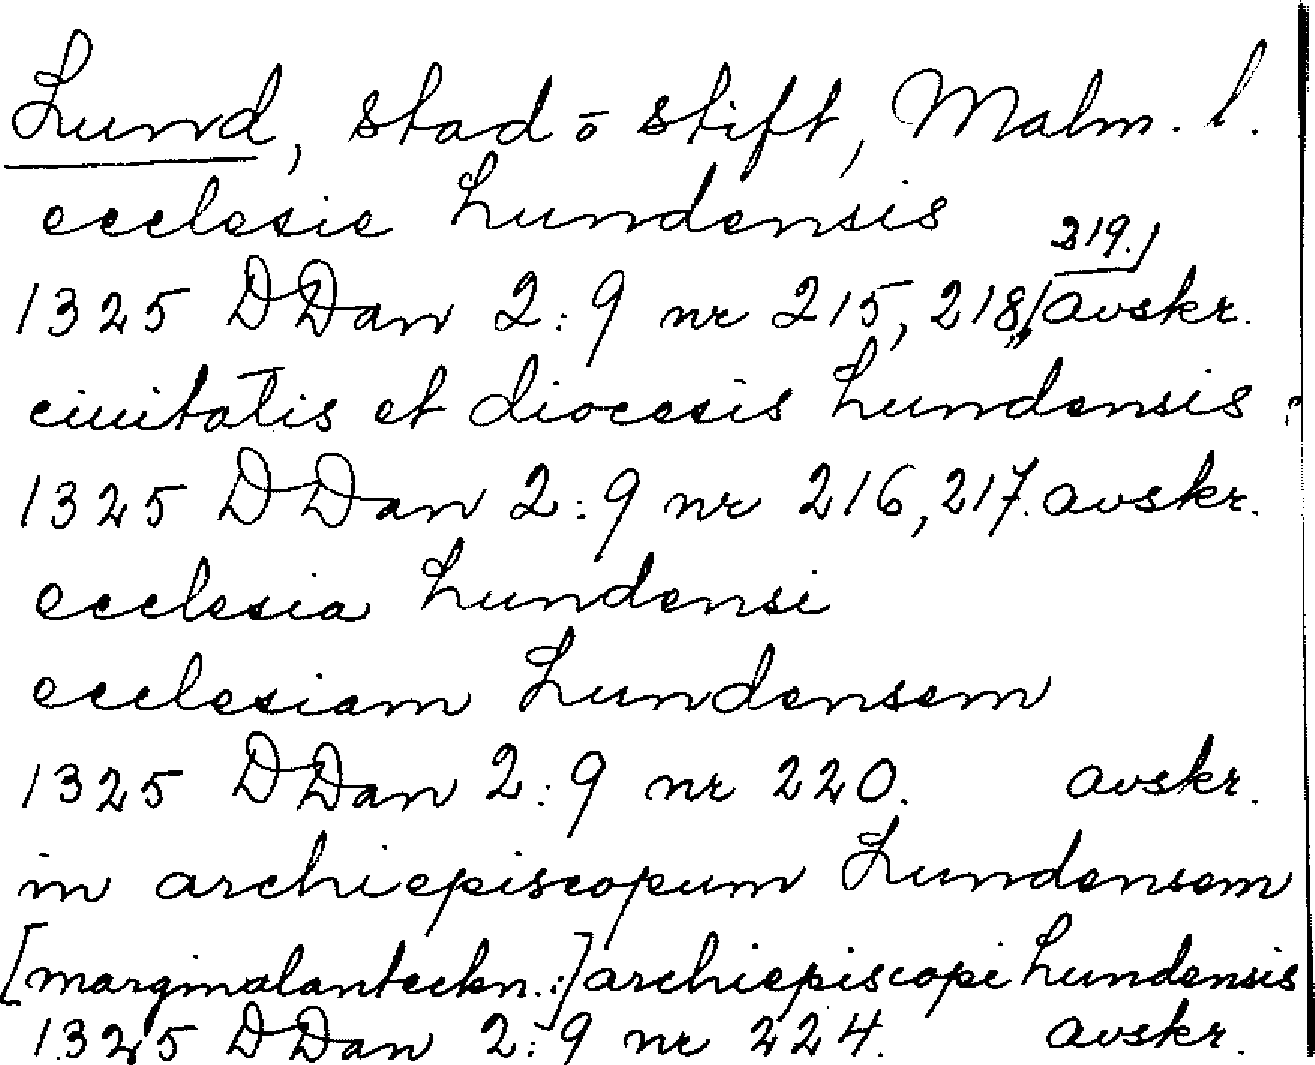 Lund, stad o stift, Malm. l.
ecclesie Lundensis
1325 DDan 2:9 nr 215, 218, 219. avskr.
ciuitatis et diocesis Lundensis
1325 DDan 2:9 nr 216, 217. avskr.
ecclesia Lundensi
ecclesiam Lundensem
1325 DDan 2:9 nr 220. avskr.
in archiepiscopum Lundensem
[marginalanteckn.:] archiepiscopi Lundensis
1325 DDan 2:9 nr 224. avskr.